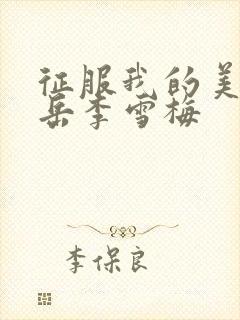 征服我的美
岳李雪梅
李保良